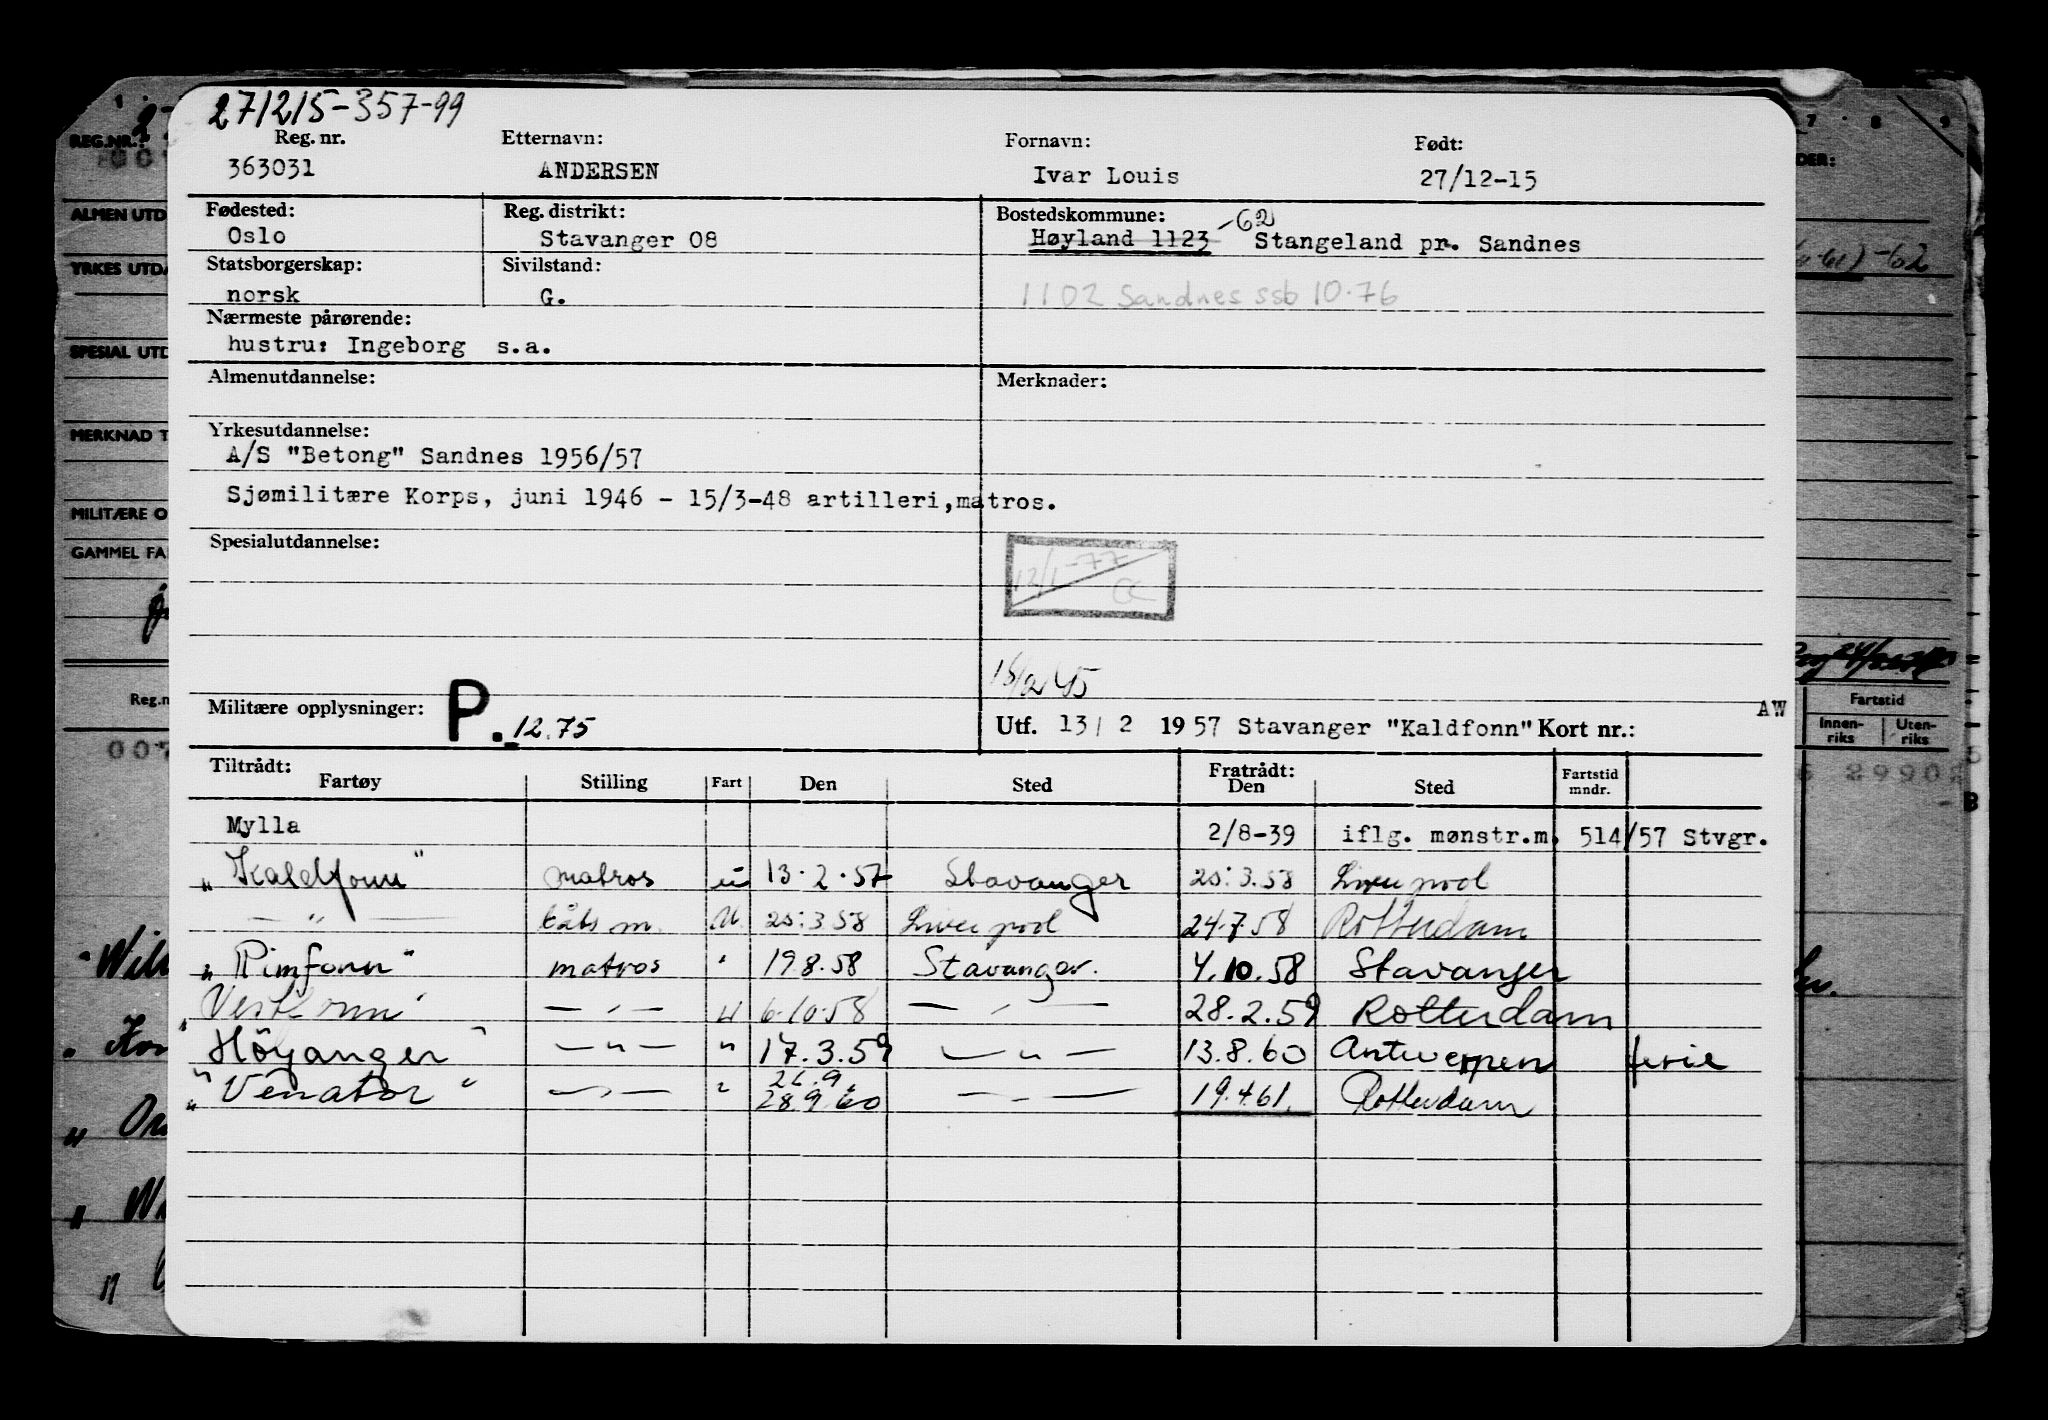 271215-357-99
Reg. nr. Etternavn: Fornavn: Født:
363031 ANDERSEN Ivar Louis 27/12-15
Fødested: Reg. distrikt: Bostedskommune:
Oslo Stavanger 08 Høyland 1123 -62 Stangeland pr. Sandnes
Statsborgerskap: Sivilstand:
norsk G. 1102 Sandnes ssb 10.76
Nærmeste pårørende:
hustru: Ingeborg s.a.
Almenutdannelse: Merknader:
Yrkesutdannelse:
A/S "Betong" Sandnes 1956/57
Sjømilitære Korps, juni 1946 - 15/3-48 artilleri,matros.
Spesialutdannelse:
12/1-77
Militære opplysninger: P. 12.75
AW
Utf. 13/ 2 1957 Stavanger "Kaldfonn" Kort nr.:
Tiltrådt: Fratrådt:
Fartøy Stilling Fart Den Sted Den Sted Fartstid mndr.
Mylla 2/8-39 iflg. mønstr.m. 514/57 Stvgr.
"Kaldfonn" matros u 13.2.57 Stavanger 25.3.58 Liverpool
— " — båts m. U 25.3.58 Liverpool 24.7.58 Rotterdam
"Rimfonn" matros " 19.8.58 Stavanger. 4.10.58 Stavanger
"Vestfonn" — " — u 6.10.58 — " — 28.2.59 Rotterdam
"Höyanger" — " — " 17.3.59 — " — 13.8.60 Antwerpen ferie
26.9.
"Venator" — " — " 28.9.60 — " — 19.4.61. Rotterdam
REG.NR.:
ALMEN UTD
YRKES UTDA
SPESIAL UTD
MERKNAD T
MILITÆRE O
GAMMEL FA
Reg.n
007
7 8 9
DER:
-62
Fartstid
Innen-riks Uten-riks
29902
B